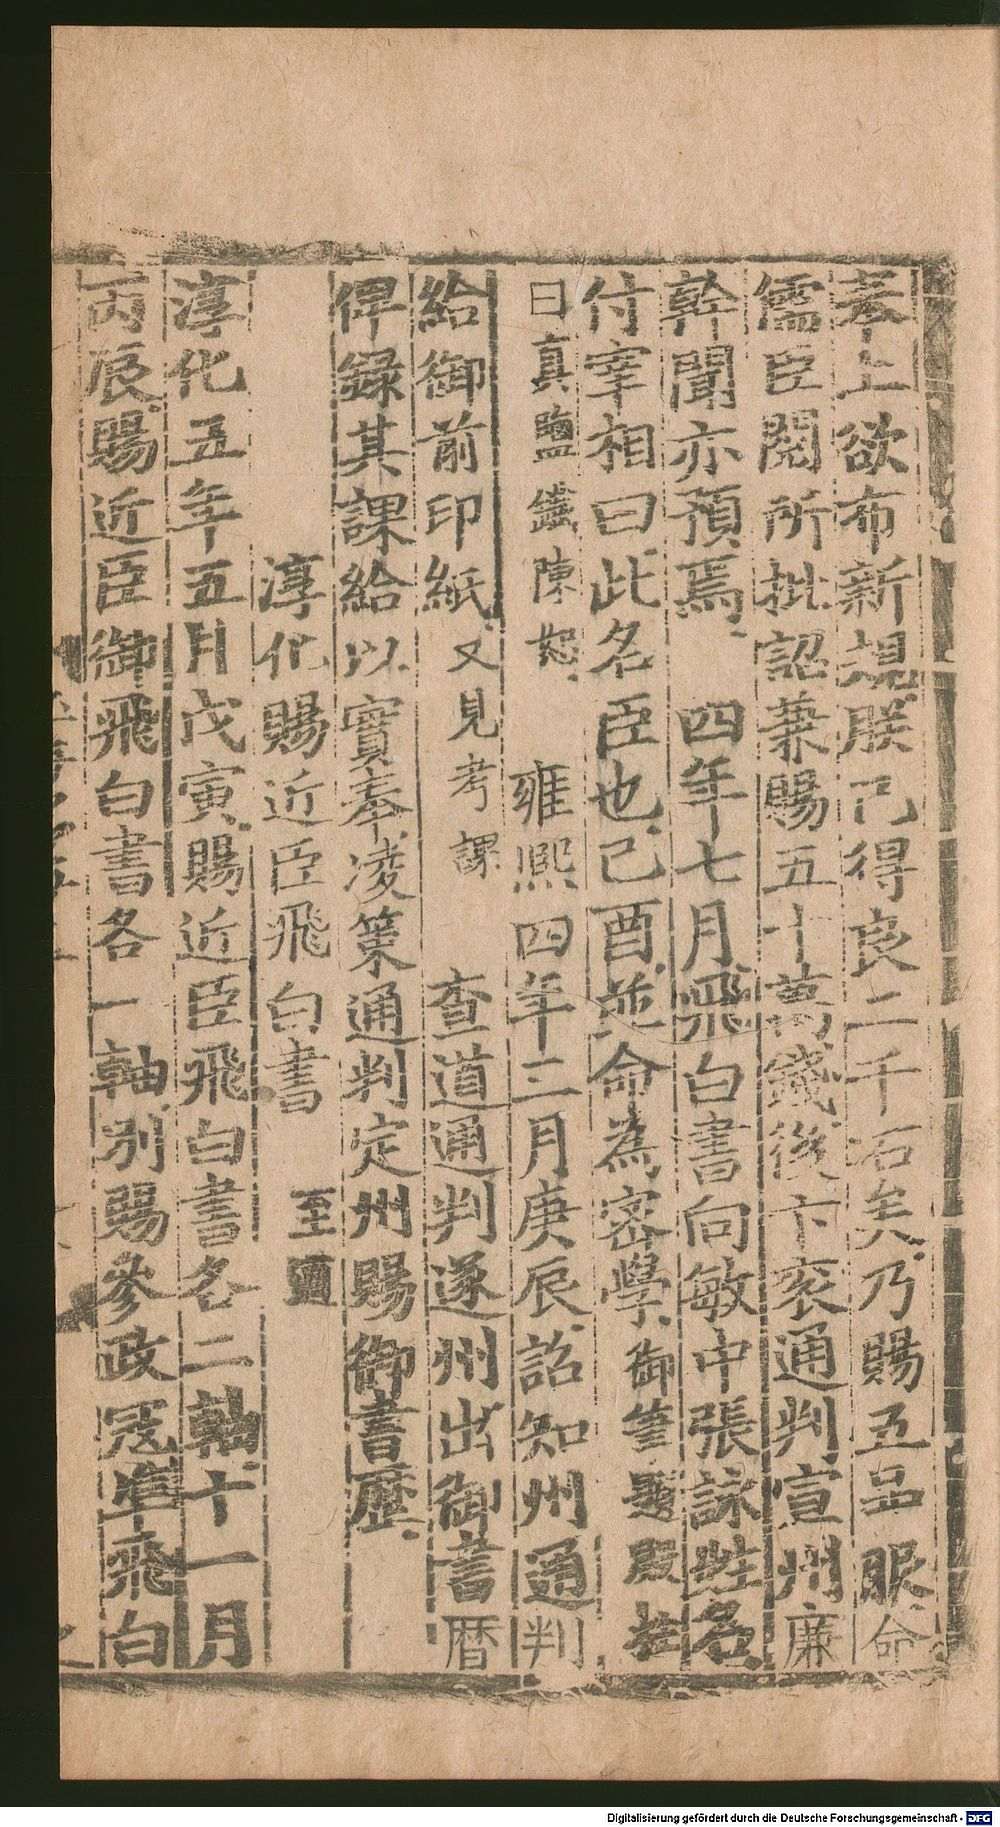 奏上欲布新規朕已得良二千石矣乃賜五品服命
儒臣閱所批詔兼賜五十萬錢後卞衮通判宣州廉
幹聞亦預焉　四年七月飛白書向敏中張詠姓名
付宰相曰此名臣也己酉並命為密學御筆題殿柱
曰真鹽鐵陳恕　雍熙四年三月庚辰詔知州通判
給御前印紙又見考課　查道通判遂州出御書曆
俾録其課給以實奉凌策通判定州賜御書歷
淳化賜近臣飛白書　至道
淳化五年五月戊寅賜近臣飛白書各二軸十一月
丙辰賜近臣御飛白書各一軸別賜參政冦準飛白
Digitalisierung gefördert durch die Deutsche Forschungsgemeinschaft - DFG